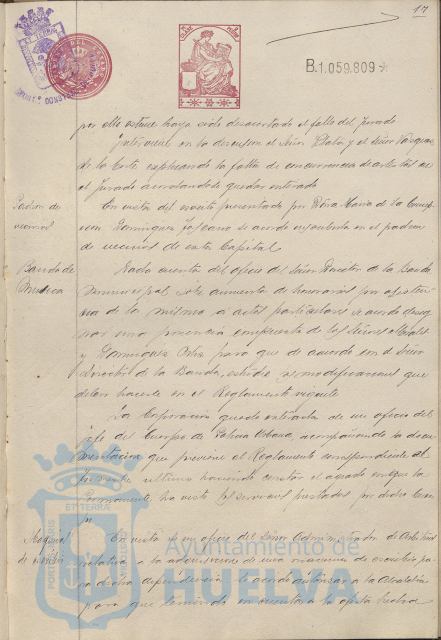 17
B.1.059.809
por ello estime haya sido desacertado el fallo del Jurado
intervienen en la discusion el Señor Plata y el Señor Vazquez
de la Corte explicando la falta de concurrencia de
el Jurado acordandose quedar enterado
Padron de
vecinos
En vista del escrito presentado por Doña Maria de la Concep
cion Dominguez se acordo en el padron
de vecinos de esta Capital
Banda de
Musica
Dada cuenta del oficio del Señor Director de la Banda
municipal sobre aumento de honorarios por asisten
cia de la misma a actos particulares se acordo desig
nar una ponencia compuesta de los Señores
y Dominguez para que de acuerdo con el Señor
Director de la Banda, estudie las modificaciones que
deban hacerse en el Reglamento vigente
La Corporacion quedo enterada de un oficio del
jefe del Cuerpo de Policia Urbana, acompañando la docu
mentacion que previene el Reglamento correspondiente al
ultimo haciendo constar el agrado con que la
Permanente ha visto los servicios prestados por dicho Cuer
po
Maquina
de escribir
En vista de un oficio del Señor Administrador de Arbitrios
relativo a la adquisicion de una maquina de escribir pa
ra dicha dependencia se acordo autorizar a la Alcaldia
para que teniendo en cuenta la oferta hecha
PORTUS MARIS
ET TERRÆ
CUSTODIA
Ayuntamiento de
HUELVA